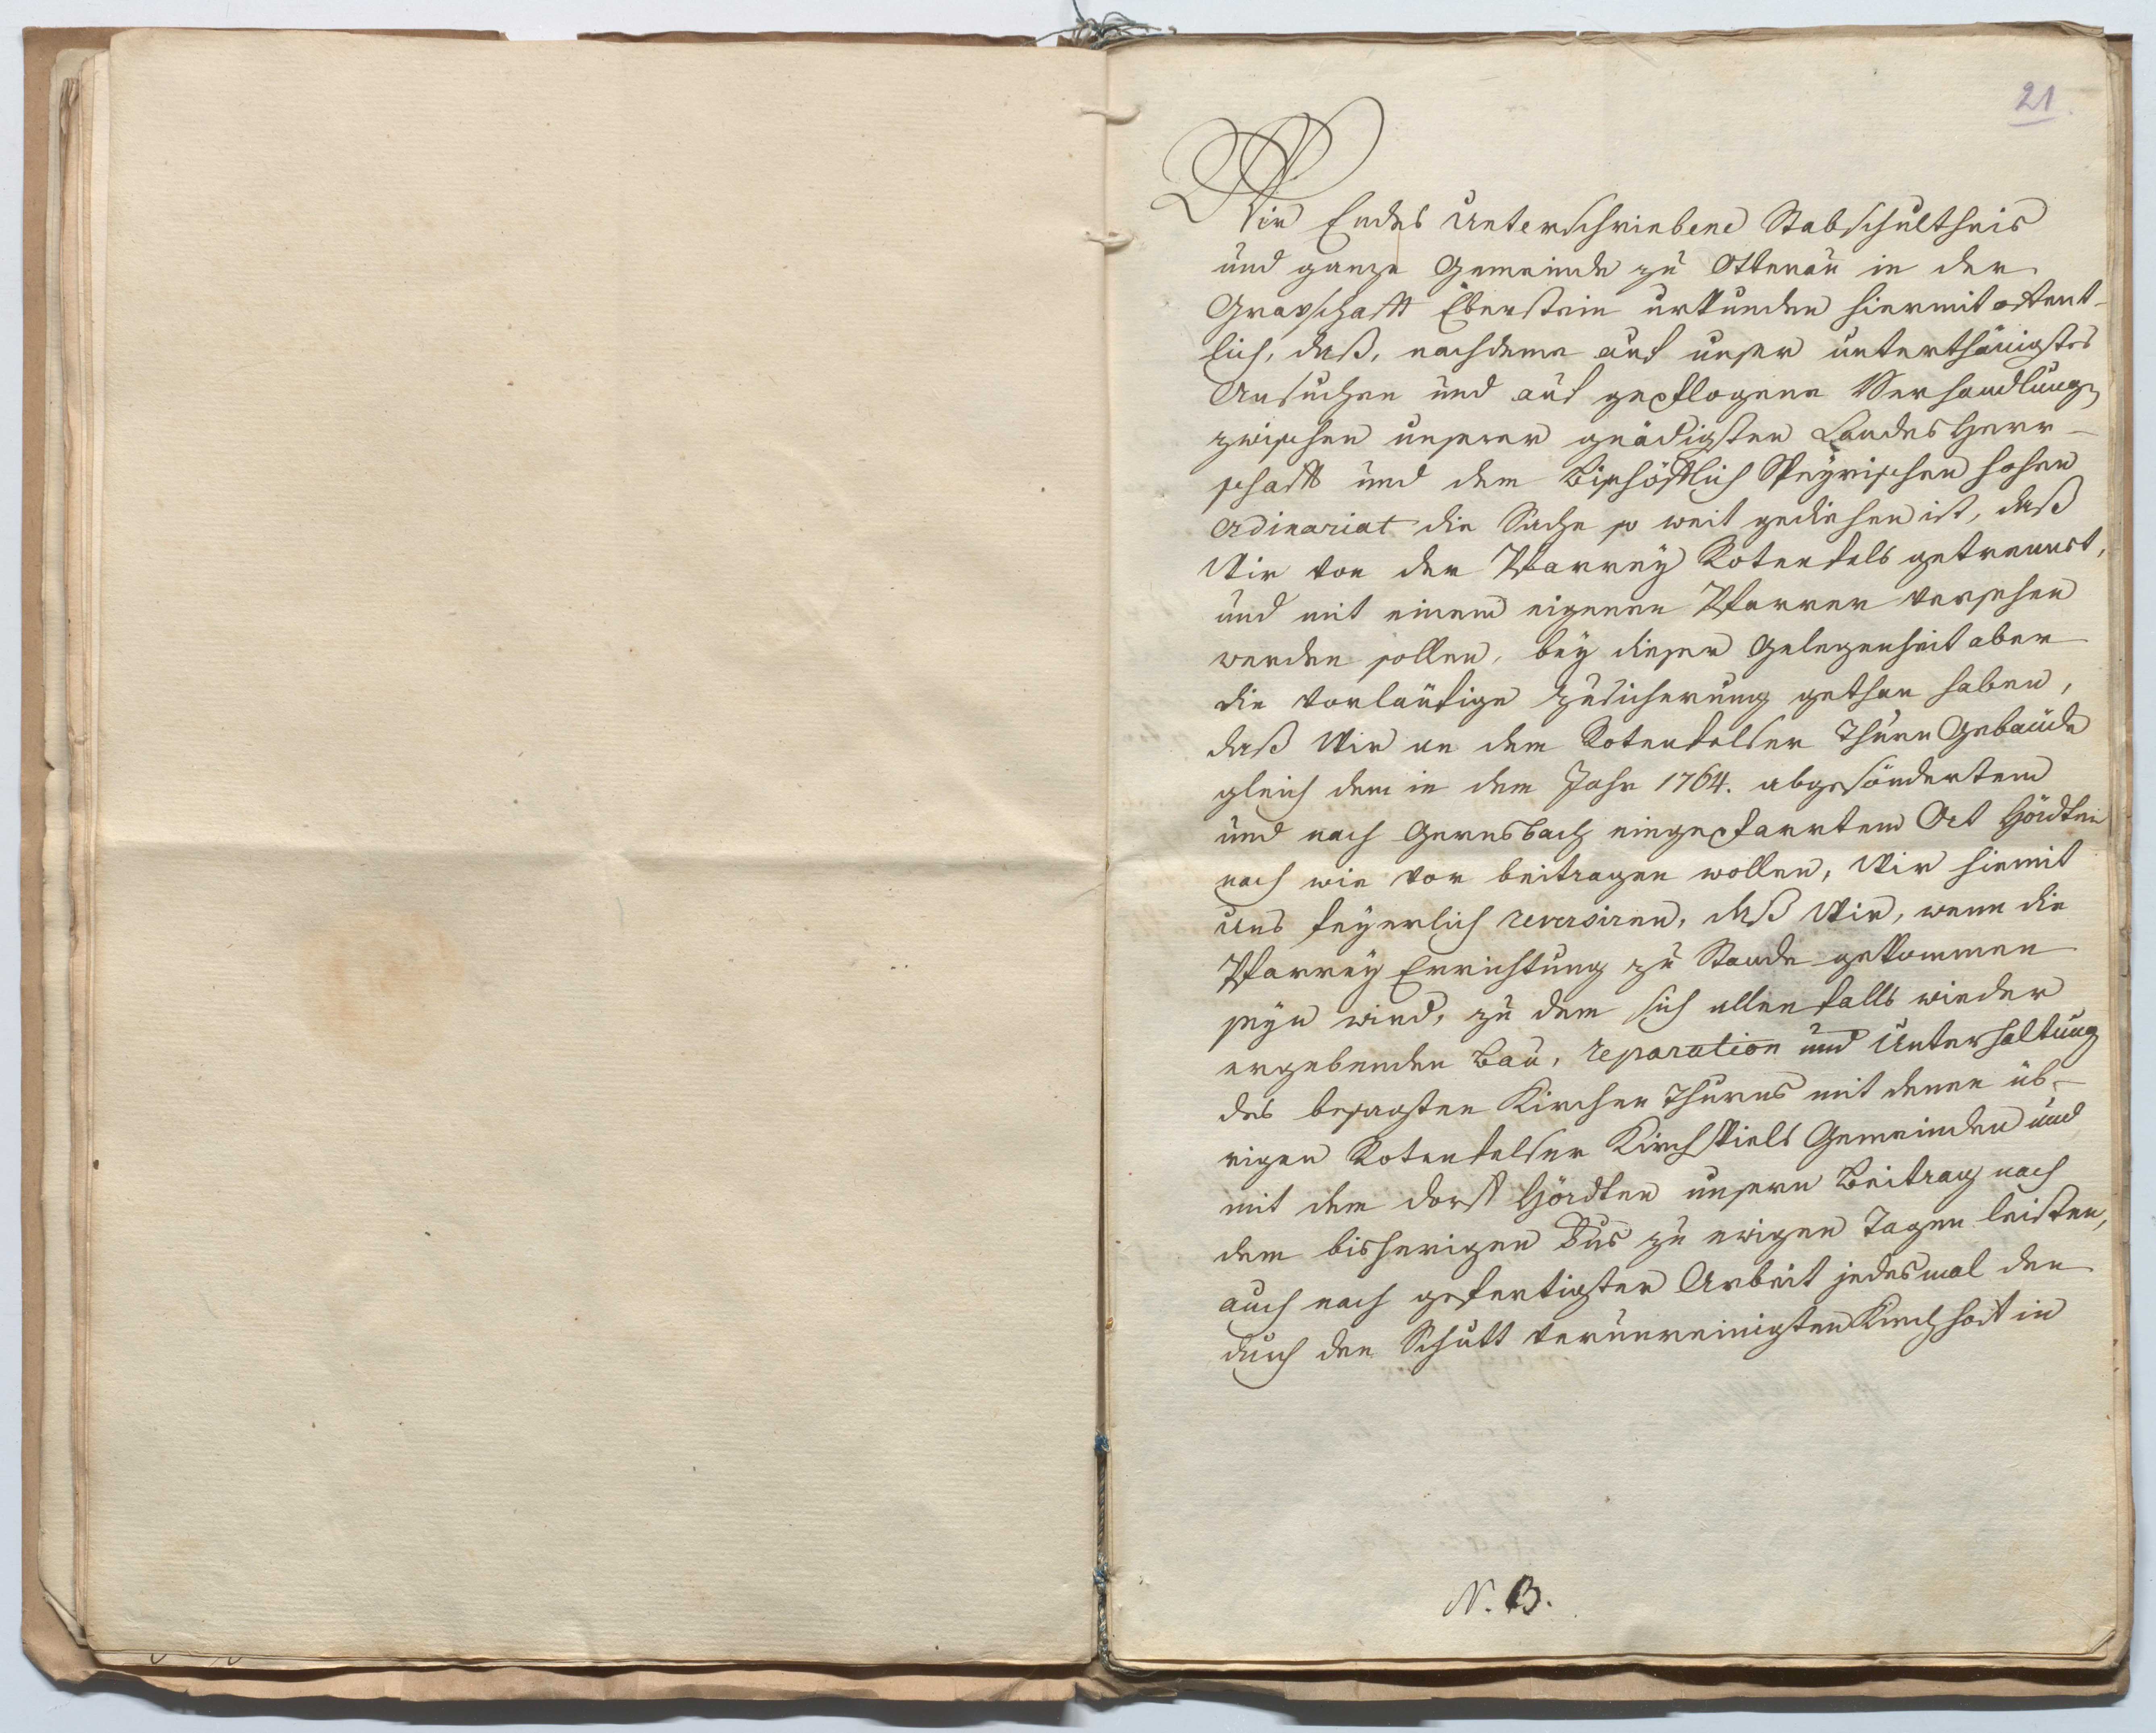 21
Wir Endes Unterschriebene Stabschultheis
und ganze Gemeinde zu Ottenau in der
Gravschafft Eberstein urkunden hiermit offent-
lich, daß, nachdeme auf unser unterthänigstes
Ansuchen und auf gepflogene Verhandlung
zwischen unserer gnädigsten Landes Herr-
schafft und dem Bischöfflich Speyrischen hohen
Ordinariat die Sache so weit gediehen ist, daß
Wir von der Pfarrey Rotenfels getrennet,
und mit einem eigenen Pfarrer versehen
werden sollen, bey dieser Gelegenheit aber
die vorläufige Zusicherung gethan haben,
daß Wir an dem Rotenfelser Thurn Gebäude
gleich dem in dem Jahr 1764. abgesöndertem
und nach Gernsbach eingepfarrtem Ort Hördten
nach wie vor beitragen wollen, Wir hiemit
uns feyerlich reversiren, daß Wir, wenn die
Pfarrey Errichtung zu Stande gekommen
seyn wird, zu dem sich allenfalls wieder
ergebenden Bau, reparation und Unterhaltung
des besagten Kirchen Thurns mit denen üb-
rigen Rotenfelser Kirchspiels Gemeinden und
mit dem dorff Hördten unsern Beitrag nach
dem bisherigen Fus zu ewigen Tagen leisten,
auch nach gefertigter Arbeit jedesmal den
durch den Schutt verunreinigten Kirchhof in
N. B.